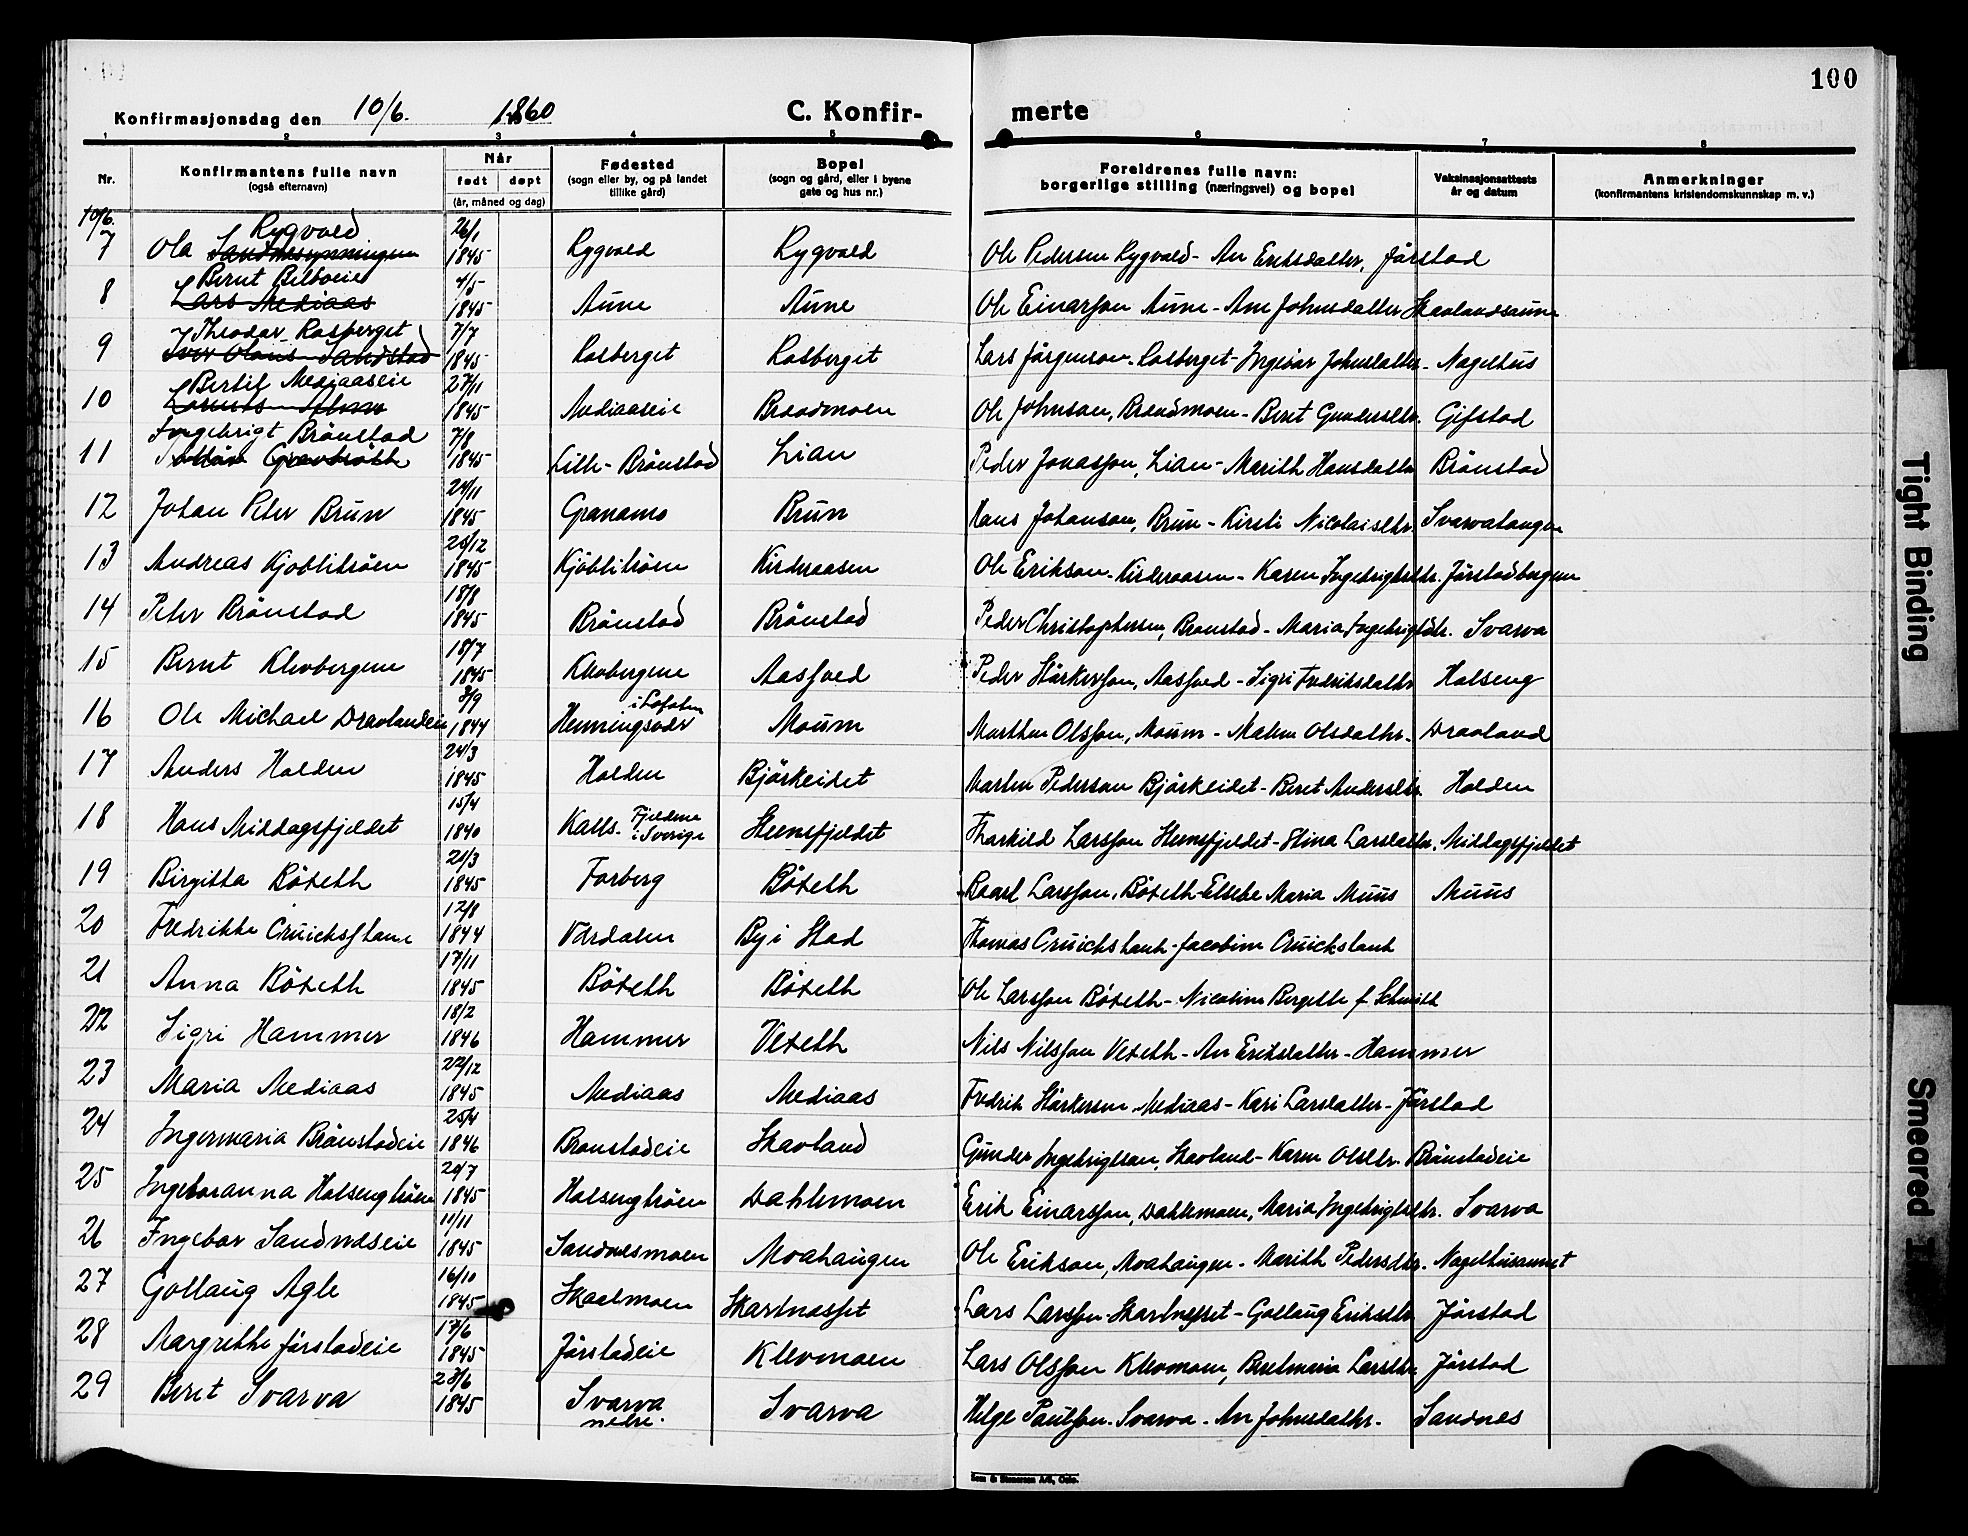 100
Konfirmasjonsdag den 10/6. 1860 C. Konfir- merte
1 2 3 4 5 6 7 8
Nr. Konfirmantens fulle navn (også efternavn) Når født døpt (år, måned og dag) Fødested (sogn eller by, og på landet tillike gård) Bopel (sogn og gård, eller i byene gate og hus nr.) Foreldrenes fulle navn: borgerlige stilling (næringsvei) og bopel Vaksinasjonsattests år og datum Anmerkninger (konfirmantens kristendomskunnskap m. v.)
10/6.
7 Ola Rygvold 26/1 1845 Rygvold Rygvold Ole Pedersen Rygvold - An Eriksdatter, Jørstad
8 Bernt 4/5 1845 Aune Aune Ole Einarsson Aune - Ane Johnsdatter Skavlandsaune
Lars Mediaas
9 Theodor Rosberget 7/7 1845 Rosberget Rosberget Lars Jørgenson Rosberget - Ingebor Johnsdatter - Nagelhus
Iver Olaus Sandstad
10 Bertil Mediaaseie 27/11 1845 Mediaaseie Braadmoen Ole Johnson, Braadmoen - Beret Gundersdtr. Gifstad
11 Ingebrigt Brønstad 7/8 1845 Lille-Brønstad Lian Peder Jonasson, Lian - Marith Hansdatter Brønstad
12 Johan Peter Brun 24/11 1845 Granamo Brun Hans Johanson, Brun - Kirsti Nicolaisdtr. Svarvahaugen
13 Andreas Kjøblitrøen 25/12 1845 Kjøblitrøen Kirderaasen Ole Erikson Kirderaasen - Karen Ingebrigtsdtr. Jørstadbergem
14 Peter Brønstad 18/8 1845 Brønstad Brønstad Peder Christophersen, Brønstad - Maria Ingebrigtsdtr. Svarva
15 Bernt Klevbergene 18/7 1845 Klevbergene Aasfved Peder Stärkerson, Aasfved - Sigri Fredriksdatter Holseng
16 Ole Michael Dravlandeie 3/9 1844 Henningsvær i Lofoten Moum Morthen Olsson, Moum - Malene Olsdatter - Dravland
17 Anders Holden 24/3 1845 Holden Bjørkeidet Morten Pederson Bjørkeidet - Beret Andersdtr. Holden
18 Hans Middagsfjeldet 15/4 1840 Kalls-Fjeldene i Sverige Steensfjeldet Thorkild Larsson Steensfjeldet - Stina Larsdatter, Middagsfjeldet
19 Birgitta Bøteth 21/3 1845 Forberg Bøteth Roael Larsson, Bøteth - Ellebe Maria Muus Muus
20 Fredrikke Cruickshank 12/8 1844 Værdalen By i Stod Thomas Cruickshank - Jacobine Cruickshank
21 Anna Bøteth 17/11 1845 Bøteth Bøteth Ole Larsson Bøteth - Nicoline Bergette f. Schmith
22 Sigri Hammer 18/2 1846 Hammer Veteth Nils Nilsson Veteth - An Eriksdatter - Hammer
23 Maria Mediaas 22/12 1845 Mediaas Mediaas Fredrik Stärkersen Mediaas - Kari Larsdatter - Jørstad
24 Ingermaria Brønstadeie 25/4 1846 Brønstadeie Skavland Gunder Ingebrigtson, Skavland - Karen Olsdtr. Brønstadeie
25 Ingeboranna Holsengtrøen 20/7 1845 Holsengtrøen Dahlemoen Erik Einarsson, Dahlemoen, Maria Ingebrigtsdtr. Svarva
26 Ingebor Sandnæseie 11/11 1845 Sandnesmoen Moahaugen Ole Erikson, Moahaugen - Marith Pedersdtr. Nagelhusaunet
27 Gollaug Agle 16/10 1845 Skaelmoen Skartnæsset Lars Larsson Skartnesset - Gollaug Eriksdtr Jørstad
28 Margrethe Jørstadeie 17/6 1845 Jørstadeie Klevmoen Lars Olsson Klevmoen, Beretmaria Larsdtr Jørstad
29 Beret Svarva 28/6 1845 Svarva nedre. Svarva Helge Paulsson Svarva - An Johnsdatter. Sandnes
Sem & Stenersen A/S, Oslo.
Tight Binding
Smeared I.